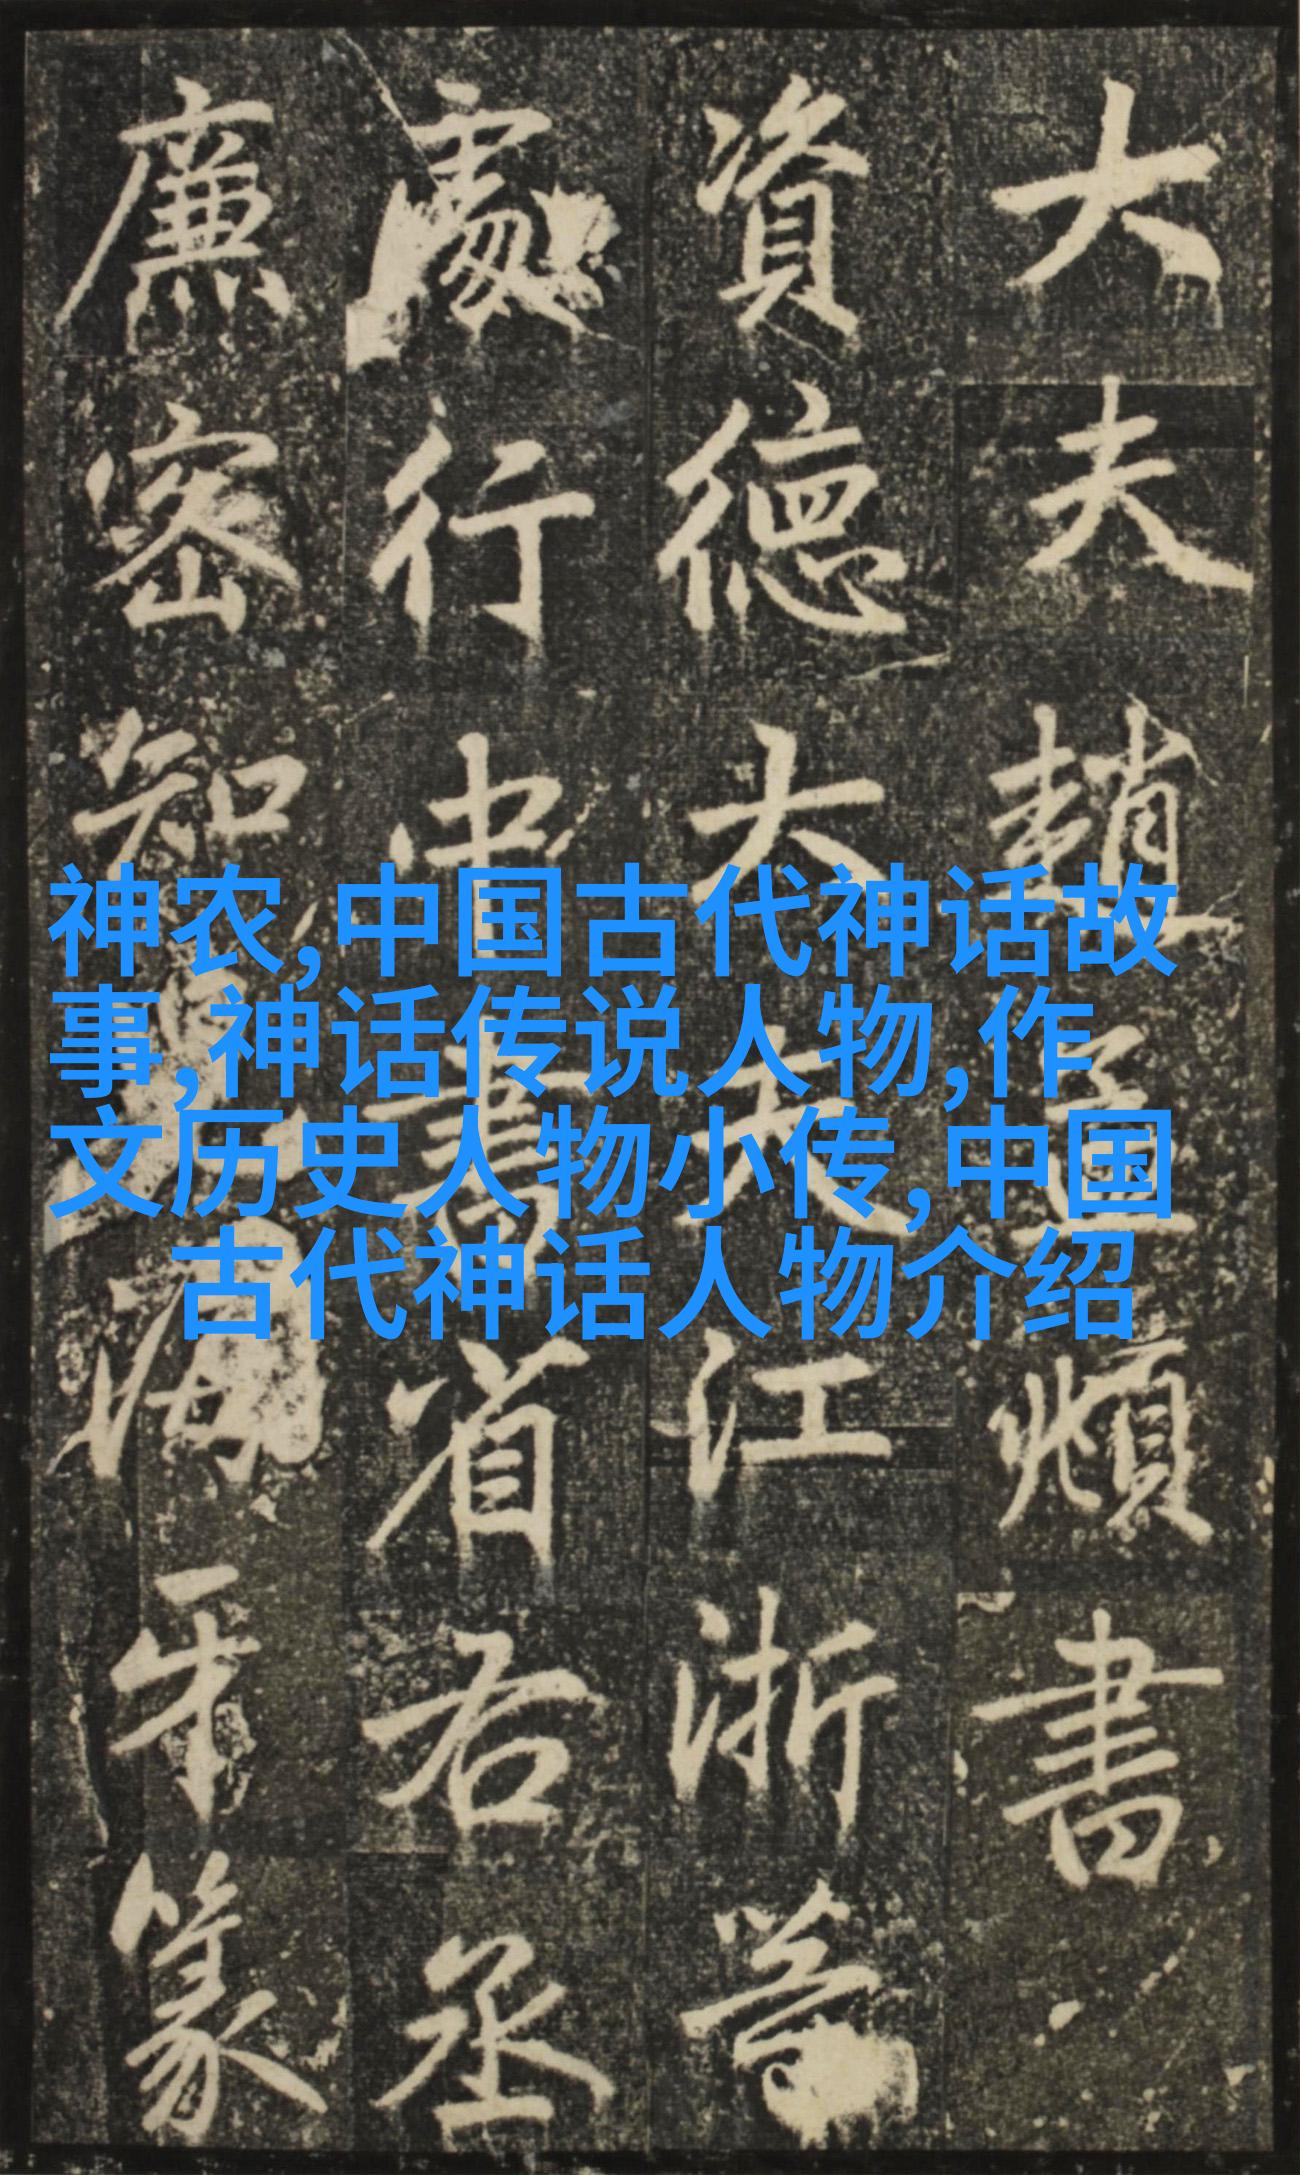 大夫趙孟頫書
資德大夫江浙等
處行中書省右丞
廉密知海牙篆
神农,中国古代神话故
事,神话传说人物,作
文历史人物小传,中国
古代神话人物介绍